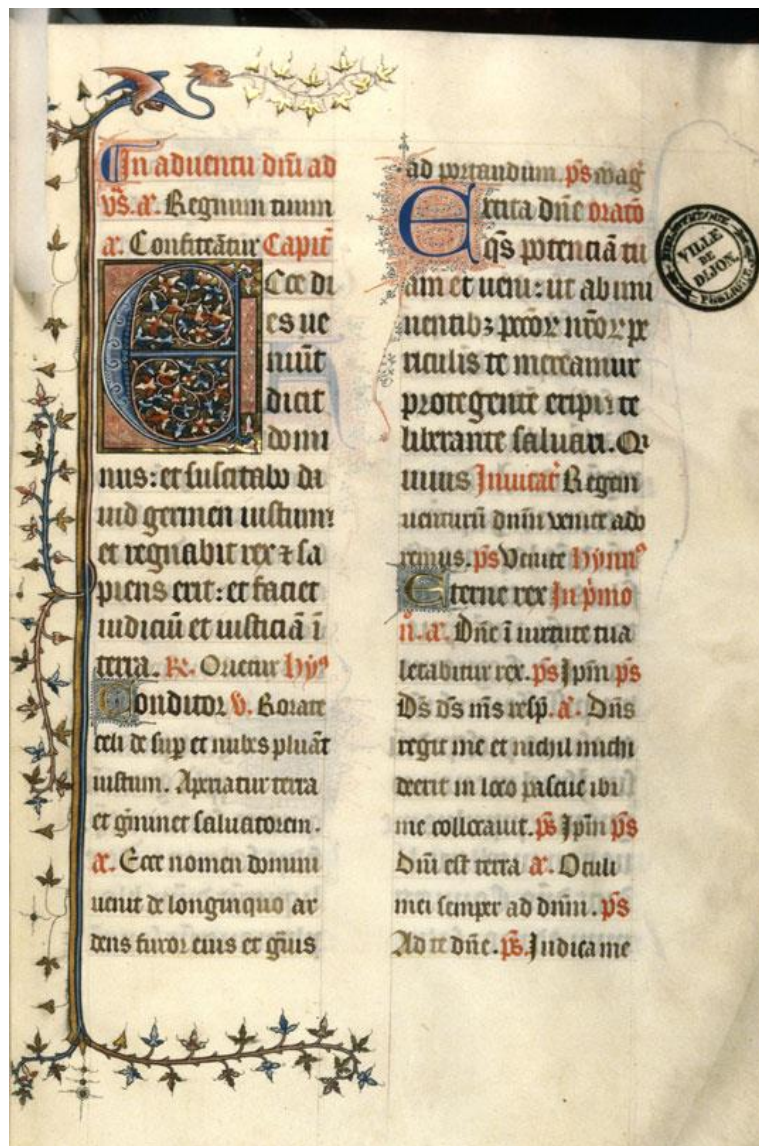 In aduentu dm̄ ad
vs̄. a. Regnum tuum
a. Confiteātur Capit̄
Ecce di
es ue
niūt
dicit
domi
nus: et suscitabo da
uid germen iustum:
et regnabit rex ⁊ sa
piens erit: et faciet
iudiciū et iusticiā ī
terra. R. Orietur hyꝰ
Conditor v. Rorate
celi de sup et nubes pluāt
iustum. Aperiatur terra
et gͥminet saluatorem.
a. Ecce nomen domini
uenit de longinquo ar
dens furor eius et gͣuis
ad portandum. ps̄ mag̅
Excita dn̄e orato̅
qs̄ potenciā tu
am et ueni: ut ab imi
nentibꝫ pccōꝝ nr̄oꝝ pe
riculis te mereamur
protegente eripi te
liberante saluari. Qi
uiuis Inuitat̄ Regem
uenturū dnm̄ venite ado
remus. ps̄ Venite hymnꝰ
Eterne rex In pͥmo
n̄. a. Dn̄e ī uirtute tua
letabitur rex. ps̄ Ipm̄ ps̄
Ds̄ ds̄ ms̄ resp̄. a. Dn̄s
regit me et nichil michi
deerit in loco pascue ibi
me collocauit. ps̄ Ipm̄ ps̄
Dn̄i est terra a. Oculi
mei semper ad dnm̄. ps̄
Ad te dn̄e. ps̄. Iudica me
VILLE
DE
DIJON.